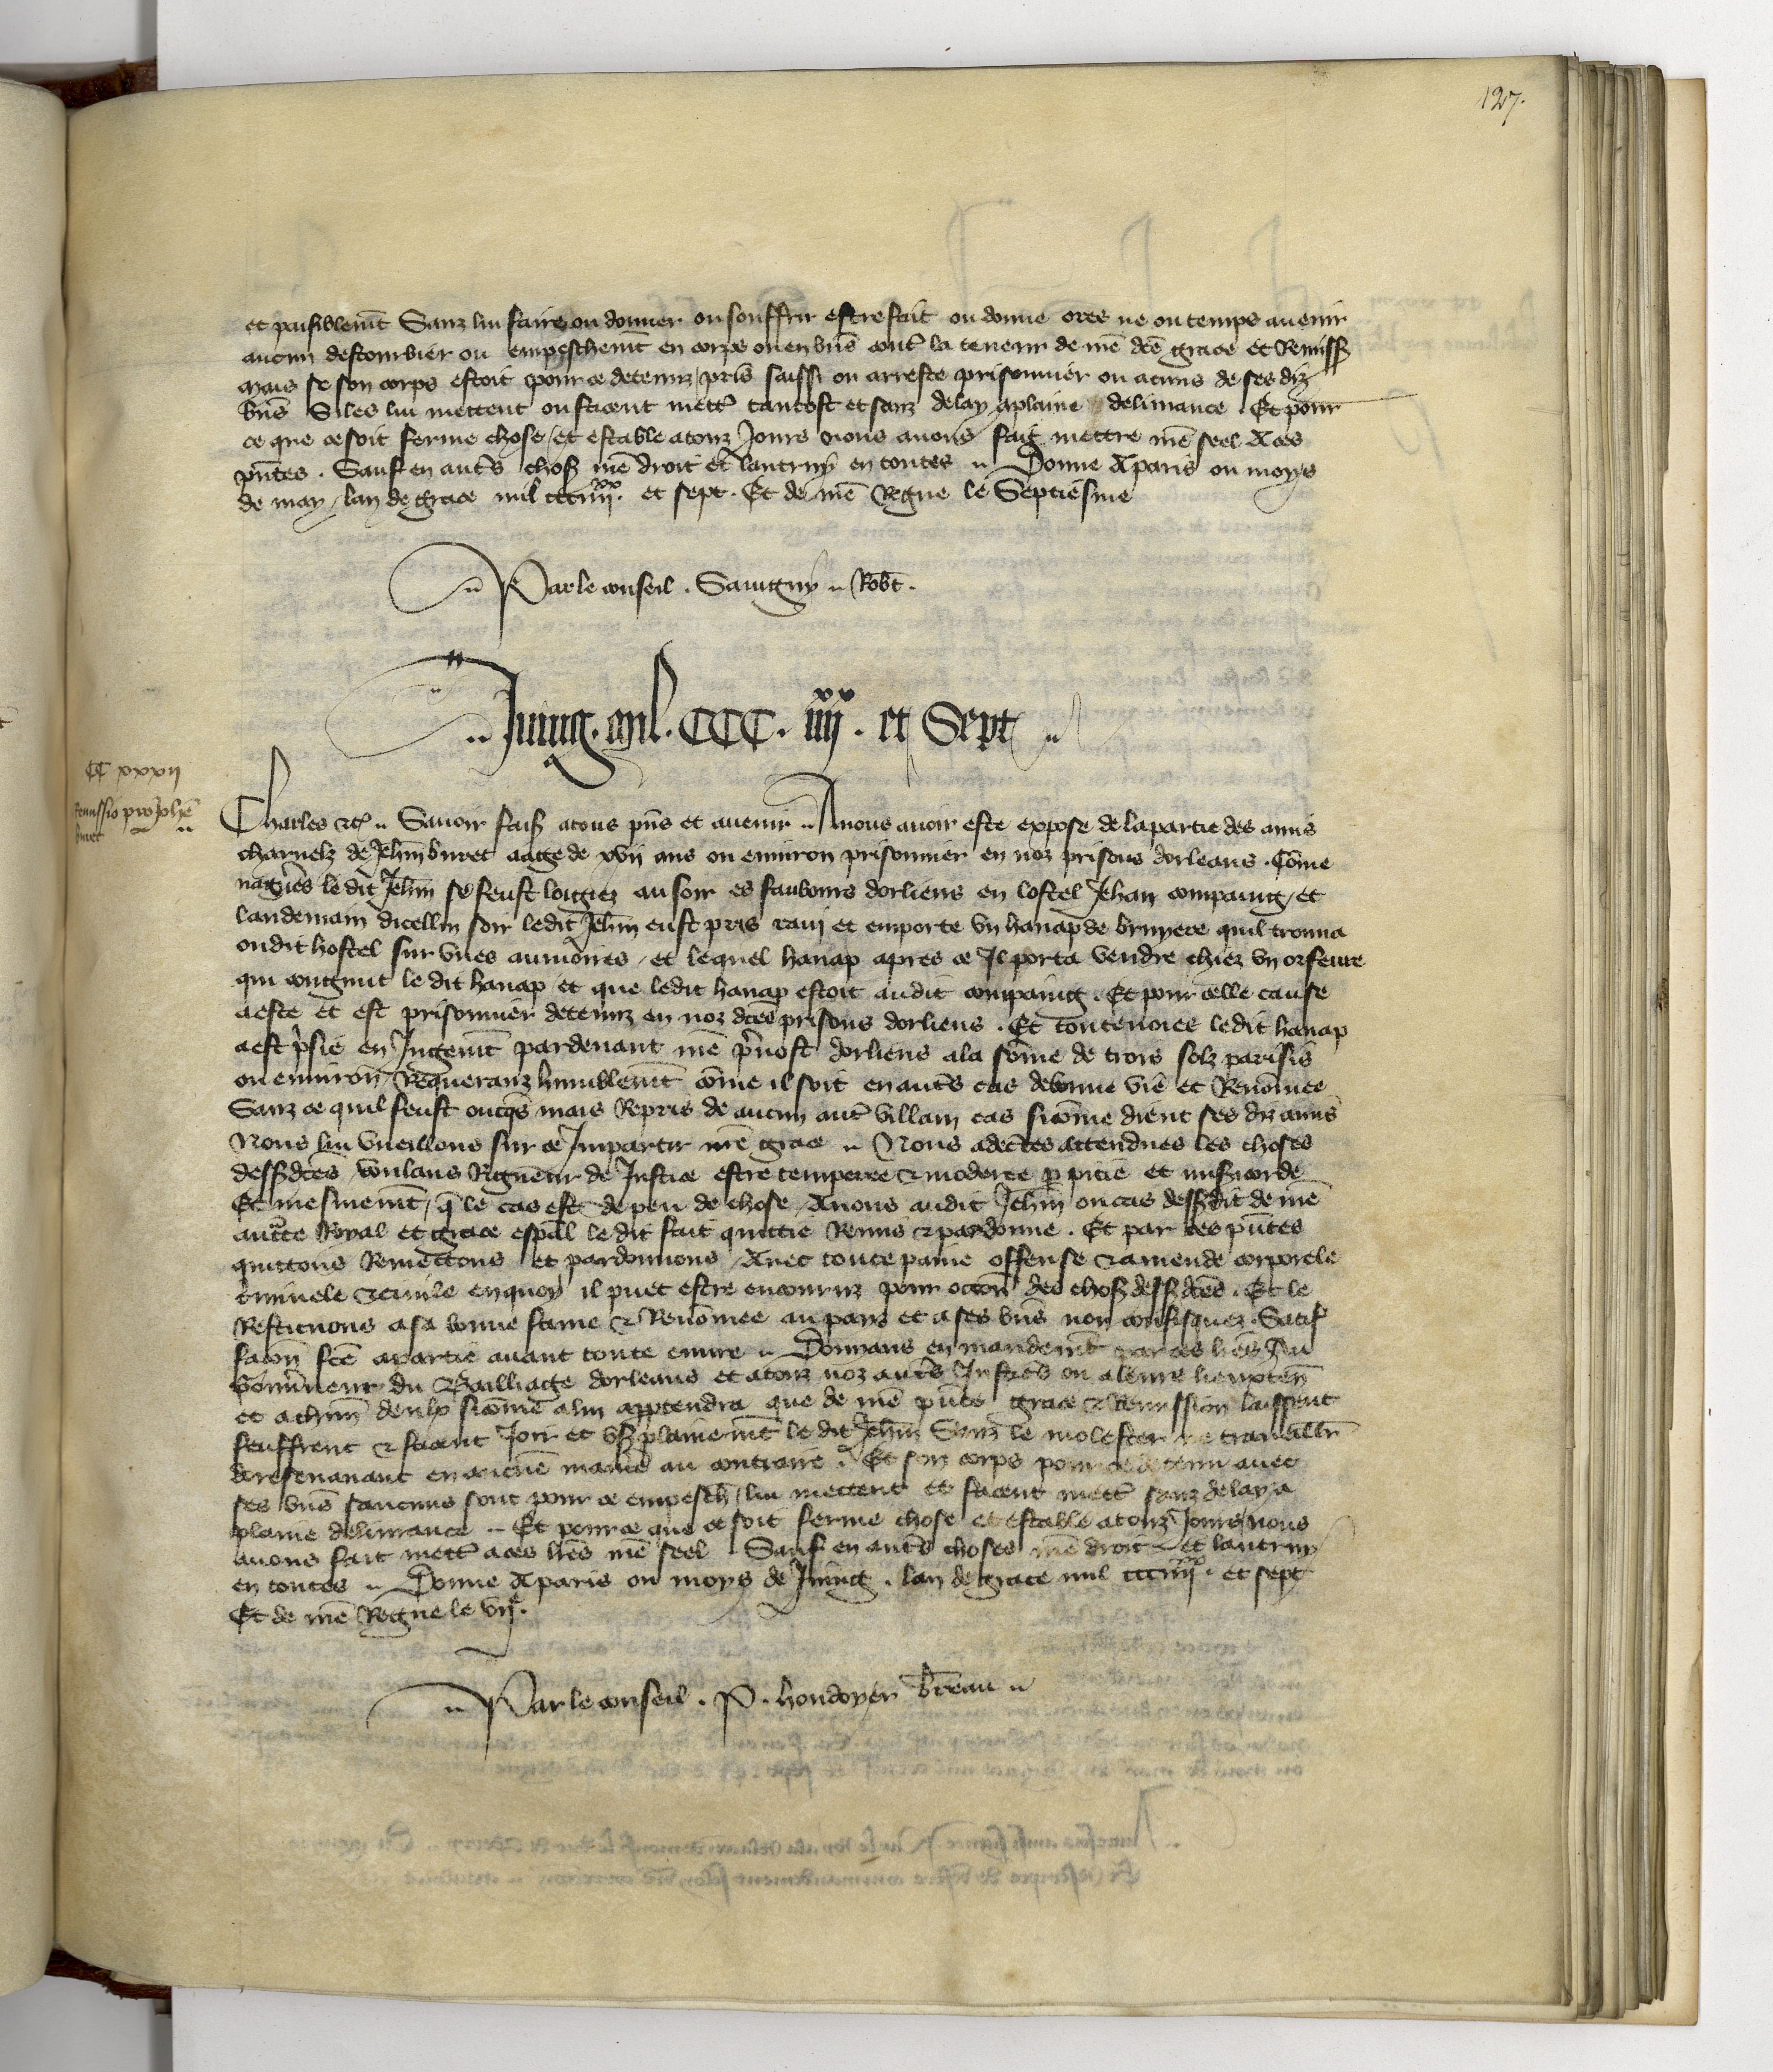 127.
et paisiblemt Sanz lui faire ou donner ou souffrir estre fait ou donne ores ne ou temps auenir
aucun destourbier ou empeschemt en corps ou en biēs contr̄ la teneur de nr̄e dc̄e grace et Remiss
mais se son corps estoit pour ce detenuz pris saissi ou arreste prisonnier ou aucuns de ses diz
biēs Si les lui mettent ou facent mettr̄ tantost et sanz delay a plaine deliurance . Et pour
ce que ce soit ferme chose et estable a touz Jours nous auons fait mettre nr̄e seel A ces
pn̄tes . Sauf en autr̄s chos nr̄e droit et lautruy en toutes .. Donne A paris ou moys
de may lan de grace mil ccciiiixx. et sept . Et de nr̄e Regne le Septiesme
.. Par le conseil . Sauigny .. Robt̄ .
.. Juing . mil . CCC . iiiixx . et Sept ..
CC xxxii
Remissio pro Joh̄e
buret
Charles etc .. Sauoir fais a tous pn̄s et auenir .. A nous auoir este expose de la partie des amis
charnelz de Jeh̄n buret aage de xvii ans ou enuiron prisonnier en noz prisons dorleans . Cōme
nagueres le dit Jeh̄n se feust logiez au soir es faubours dorliens en lostel Jehan compaing et
landemain dicellui soir ledit Jeh̄n eust pris raui et emporte vn hanap de bruyere quil trouua
oudit hostel sur vnes aumoires et lequel hanap apres ce Il porta vendre chiez vn orfeure
qui congnut le dit hanap et que ledit hanap estoit audit compaing . Et pour celle cause
a este et est prisonnier detenuz en noz dc̄es prisons dorliens . Et toutevoies ledit hanap
a est p̄sie en Jugemt pardeuant nr̄e p̄uost dorliens a la sōme de trois solz parisis
ou enuiron Requeranz humblemt cōme il soit en autr̄s cas de bonne vie et Renōmee
Sanz ce quil feust onq̄s mais Repris de aucun autr̄ villain cas si cōme dient ses diz amis
Nous lui vueillons sur ce Impartir nr̄e grace .. Nous adecertes attendues les choses
dessdc̄es voulans Rigueur de Justice estre temperee & moderee p̄ pitie et misicorde
Et mesmemt q̄ le cas est de peu de chose Auons audit Jeh̄n ou cas dessdit de nr̄e
auctte Royal et grace esp̄al le dit fait quittie Remis & pardonne . Et par ces pn̄tes
quittons Remettons et pardonnons Auec toute paine offense & amende corporele
criminele & ciuile en quoy il puet estre encouruz pour occōn des chos dessdc̄es . Et le
Restituons a sa bonne fame & Renōmee au pays et a ses biēs non confisquez . Satif
facōn fc̄e a partie auant toute euure .. Donnans en mandemt par ces lr̄es Au
Gouūneur du Bailliage dorleans et a touz noz autr̄s Justic̄s ou a leurs lieuxten̄
et a chūn deulx si cōme a lui appartendra que de nr̄e pn̄te grace & Remission laissent
seuffrent & facent Joir et vs̄ plainemt le dit Jeh̄n Sanz le molester ne trauaillr̄
doresenauant en aucune maniē au contraire . Et son corps pour ce detenu auec
ses biēs saucuns sont pour ce empesch̄ lui mettent et facent mettr̄ sanz delay a
plaine deliurance .. Et pour ce que ce soit ferme chose et estable a touz Jours nous
auons fait mettr̄ a ces lr̄es nr̄e seel . Sauf en autr̄s choses nr̄e droit et lautruy
en toutes .. Donne A paris ou moys de Juing . lan de grace mil ccciiiixx . et sept
Et de nr̄e Regne le viie .
.. Par le conseil . P . hondoyer br̄eau ..